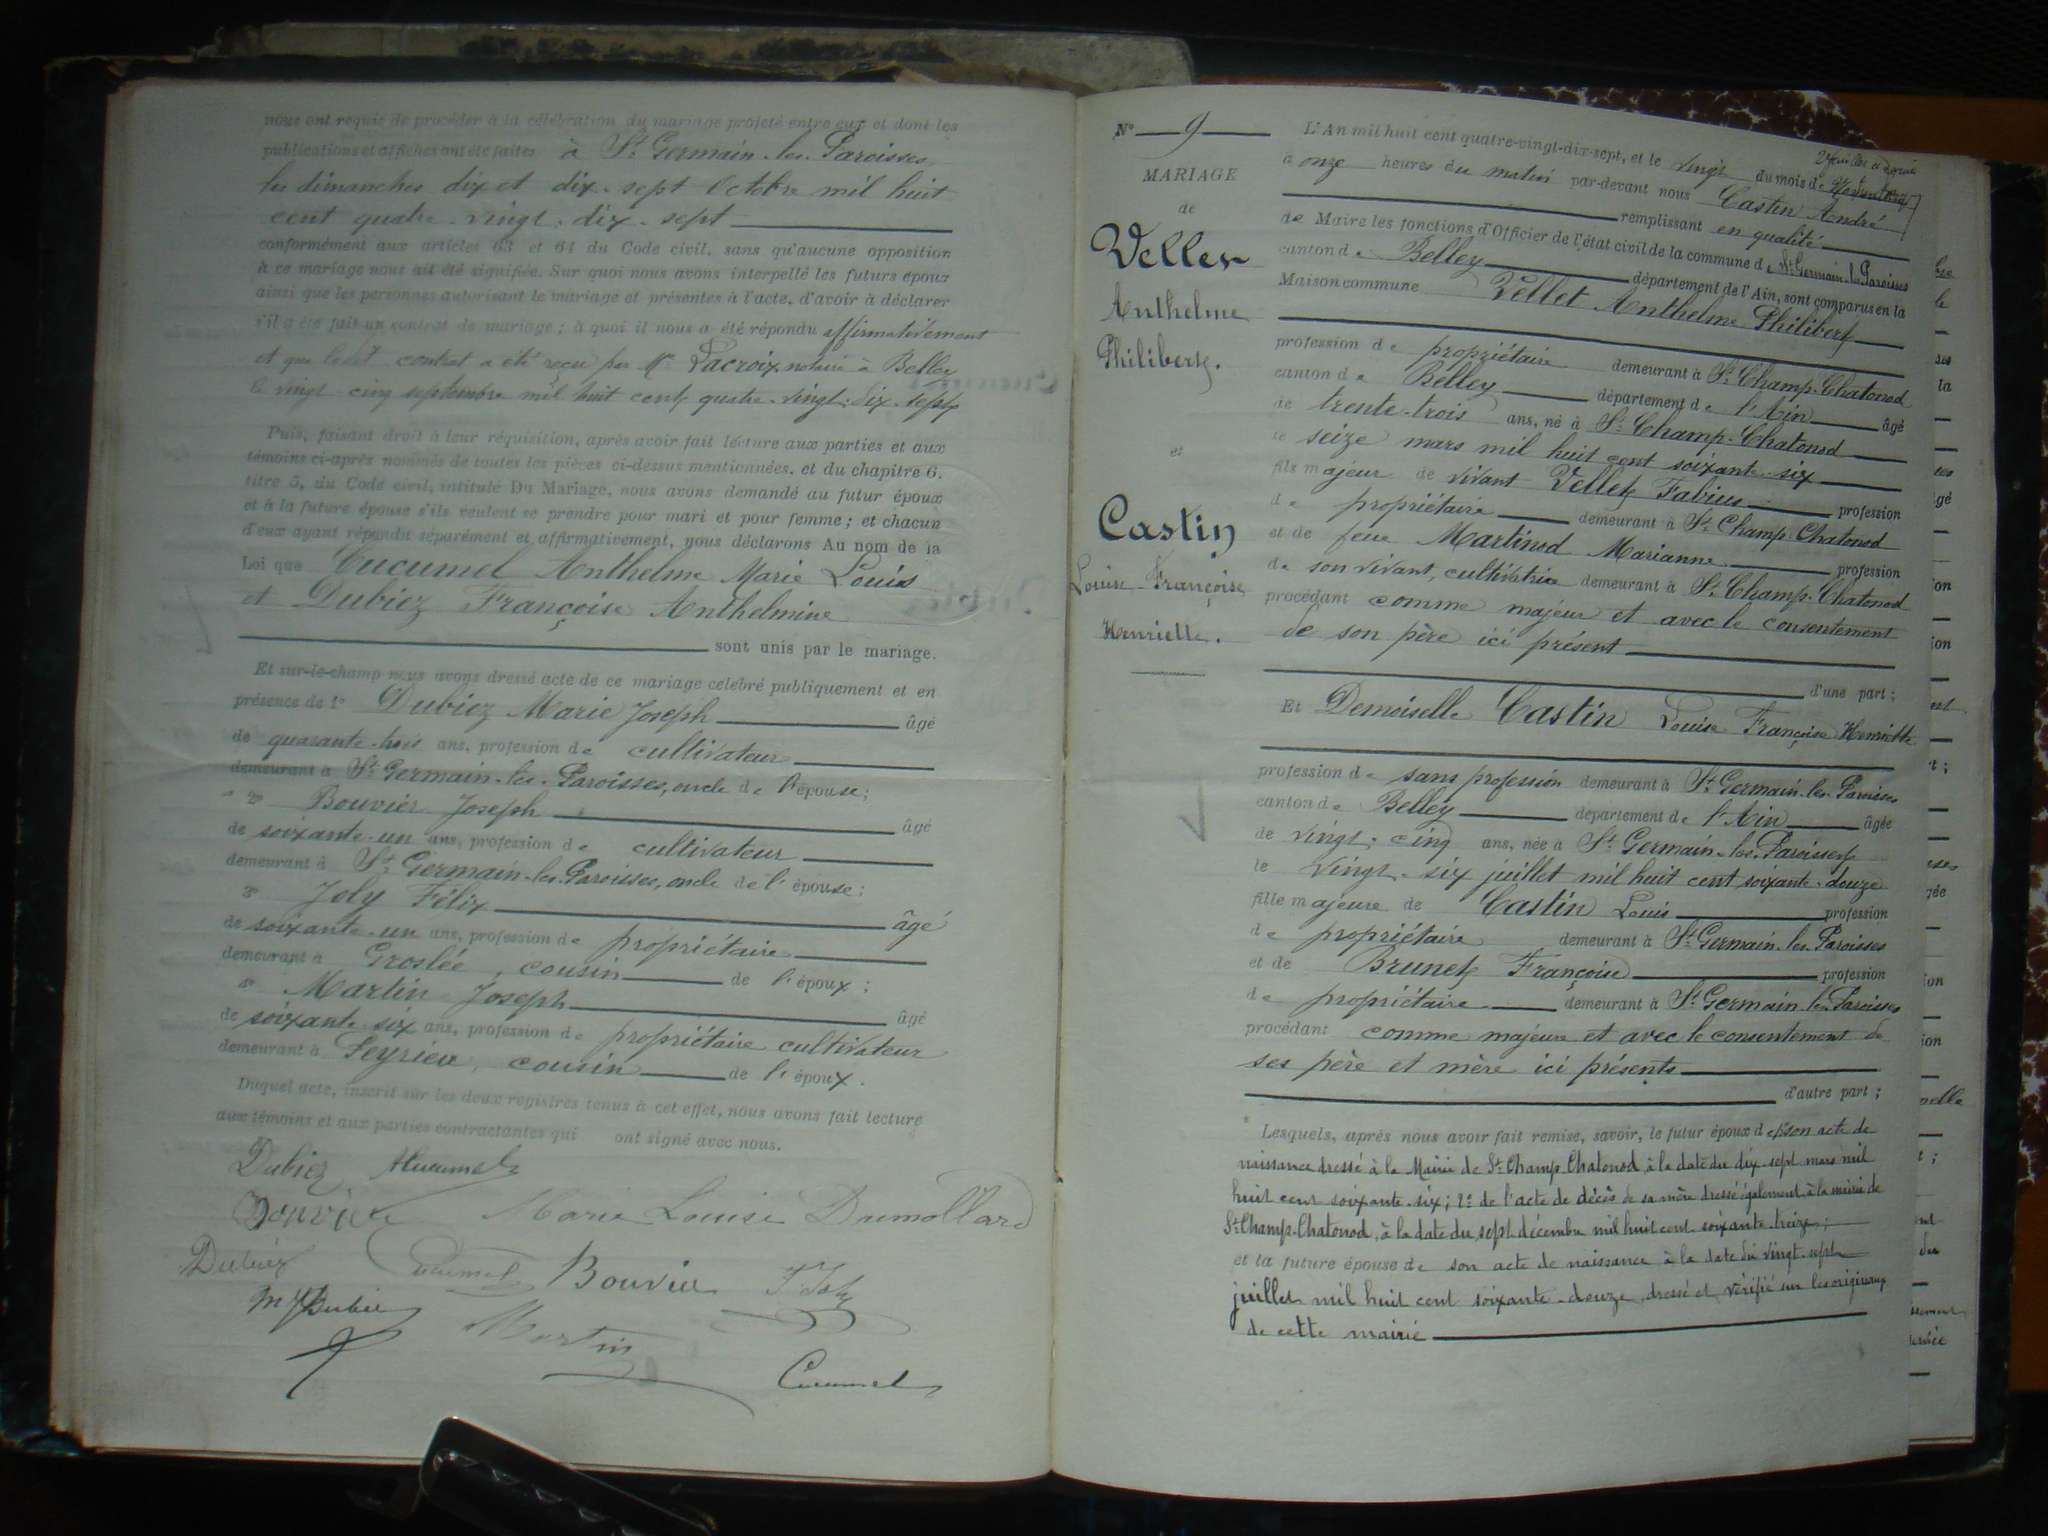 nous ont requis de procéder à la célébration du mariage projeté entre eux et dont les
publications et affiches ont été faites à St. Germain-les-Paroisses
les dimanches dix et dix-sept Octobre mil huit
cent quatre-vingt-dix-sept
conformément aux articles 63 et 64 du Code civil, sans qu'aucune opposition
à ce mariage nous ait été signifiée. Sur quoi nous avons interpellé les futurs époux
ainsi que les personnes autorisant le mariage et présentes à l'acte, d'avoir à déclarer
s'il a été fait un contrat de mariage; à quoi il nous a été répondu affirmativement
et que ledit contrat a été reçu par Me Lacroix notaire à Belley
le vingt cinq septembre mil huit cent quatre-vingt-dix-sept
Puis, faisant droit à leur réquisition, après avoir fait lecture aux parties et aux
témoins ci-après nommés de toutes les pièces ci-dessus mentionnées, et du chapitre 6,
titre 5, du Code civil, intitulé Du Mariage, nous avons demandé au futur époux
et à la future épouse s'ils veulent se prendre pour mari et pour femme; et chacun
d'eux ayant répondu séparément et affirmativement, nous déclarons Au nom de la
Loi que Cucumel Anthelme Marie Louis
et Dubiez Françoise Anthelmine
sont unis par le mariage.
Et sur-le-champ nous avons dressé acte de ce mariage célébré publiquement et en
présence de 1° Dubiez Marie Joseph âgé
de quarante-trois ans, profession de cultivateur
demeurant à St. Germain-les-Paroisses, oncle de l'épouse;
2° Bouvier Joseph âgé
de soixante-un ans, profession de cultivateur
demeurant à St. Germain-les-Paroisses, oncle de l'épouse;
3° Joly Félix âgé
de soixante-un ans, profession de propriétaire
demeurant à Groslée, cousin de l'époux;
4° Martin Joseph âgé
de soixante-six ans, profession de propriétaire cultivateur
demeurant à Peyrieu, cousin de l'époux.
Duquel acte, inscrit sur les deux registres tenus à cet effet, nous avons fait lecture
aux témoins et aux parties contractantes qui ont signé avec nous.
Dubiez
Bouvier Marie Louise Dumollard
Dubiez Cucumel Bouvier F. Joly
M J Dubiez Martin
Cucumel
N° 9
MARIAGE
de
Vellet
Anthelme
Philibert.
et
Castin
Louise Françoise
Henriette.
L'An mil huit cent quatre-vingt-dix-sept, et le vingt du mois de Novembre
à onze heures du matin par-devant nous Castin André
remplissant en qualité
de Maire les fonctions d'Officier de l'état civil de la commune de St. Germain-les-Paroisses
canton de Belley département de l'Ain, sont comparus en la
Maison commune Vellet Anthelme Philibert
profession de propriétaire demeurant à St. Champ-Chatonod
canton de Belley département de l'Ain âgé
de trente-trois ans, né à St. Champ-Chatonod
le seize mars mil huit cent soixante-six
fils majeur de vivant Vellet Fabius profession
de propriétaire demeurant à St. Champ-Chatonod
et de feue Martinod Marianne profession
de son vivant, cultivatrice demeurant à St. Champ-Chatonod
procédant comme majeur et avec le consentement
de son père ici présent
d'une part;
Et Demoiselle Castin Louise Françoise Henriette
profession de sans profession demeurant à St. Germain-les-Paroisses
canton de Belley département de l'Ain âgée
de vingt-cinq ans, née à St. Germain-les-Paroisses
le vingt-six juillet mil huit cent soixante-douze
fille majeure de Castin Louis profession
de propriétaire demeurant à St. Germain-les-Paroisses
et de Brunet Françoise profession
de propriétaire demeurant à St. Germain-les-Paroisses
procédant comme majeure et avec le consentement de
ses père et mère ici présents
d'autre part;
Lesquels, après nous avoir fait remise, savoir, le futur époux de son acte de
naissance dressé à la Mairie de St. Champ-Chatonod à la date du dix-sept mars mil
huit cent soixante-six; 2° de l'acte de décès de sa mère dressé également à la mairie de
St. Champ-Chatonod, à la date du sept décembre mil huit cent soixante-treize;
et la future épouse de son acte de naissance à la date du vingt-sept
juillet mil huit cent soixante-douze, dressé et vérifié sur les originaux
de cette mairie